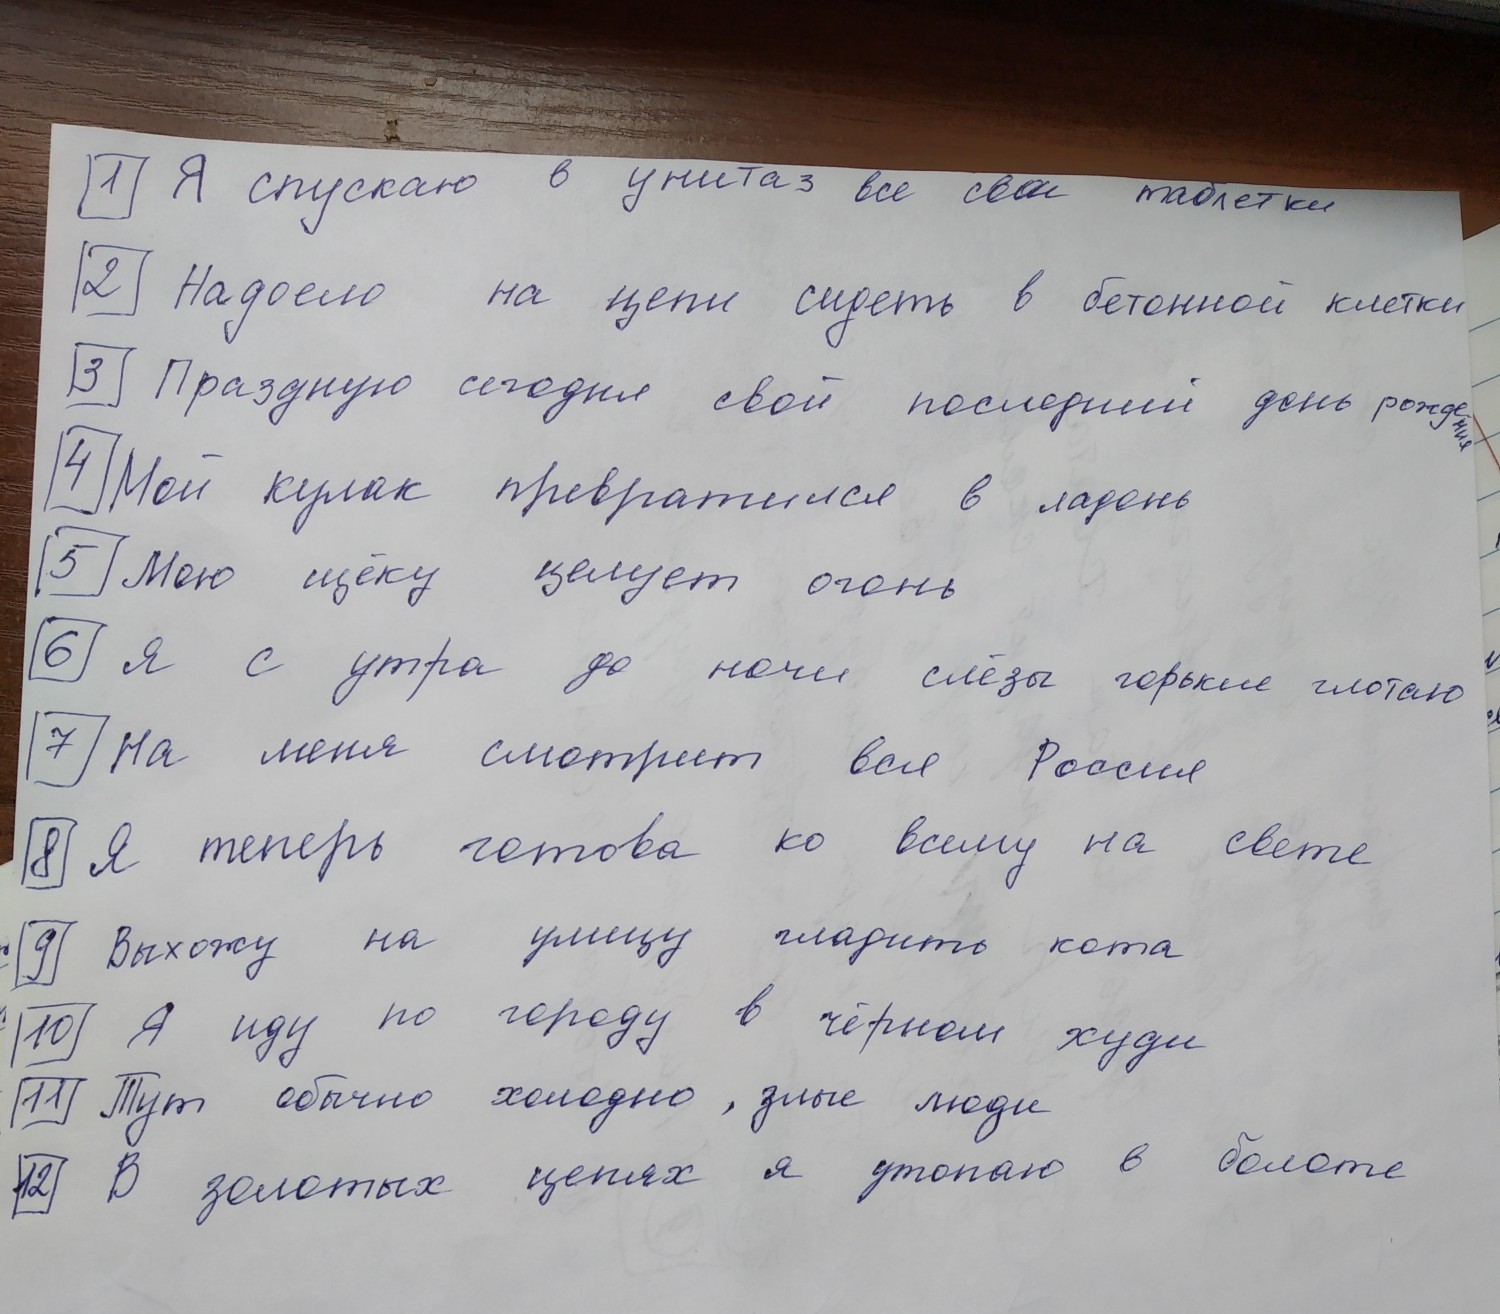 1 Я спускаю в унитаз все свои таблетки
2 Надоело на цепи сидеть в бетонной клетки
3 Праздную сегодня свой последний день рождения
4 Мой кулак превратился в ладонь
5 Мою щёку целует огонь
6 Я с утра до ночи слёзы горькие глотаю
7 На меня смотрит вся Россия
8 Я теперь готова ко всему на свете
9 Выхожу на улицу гладить кота
10 Я иду по городу в чёрном худи
11 Тут обычно холодно, злые люди
12 В золотых цепях я утопаю в болоте